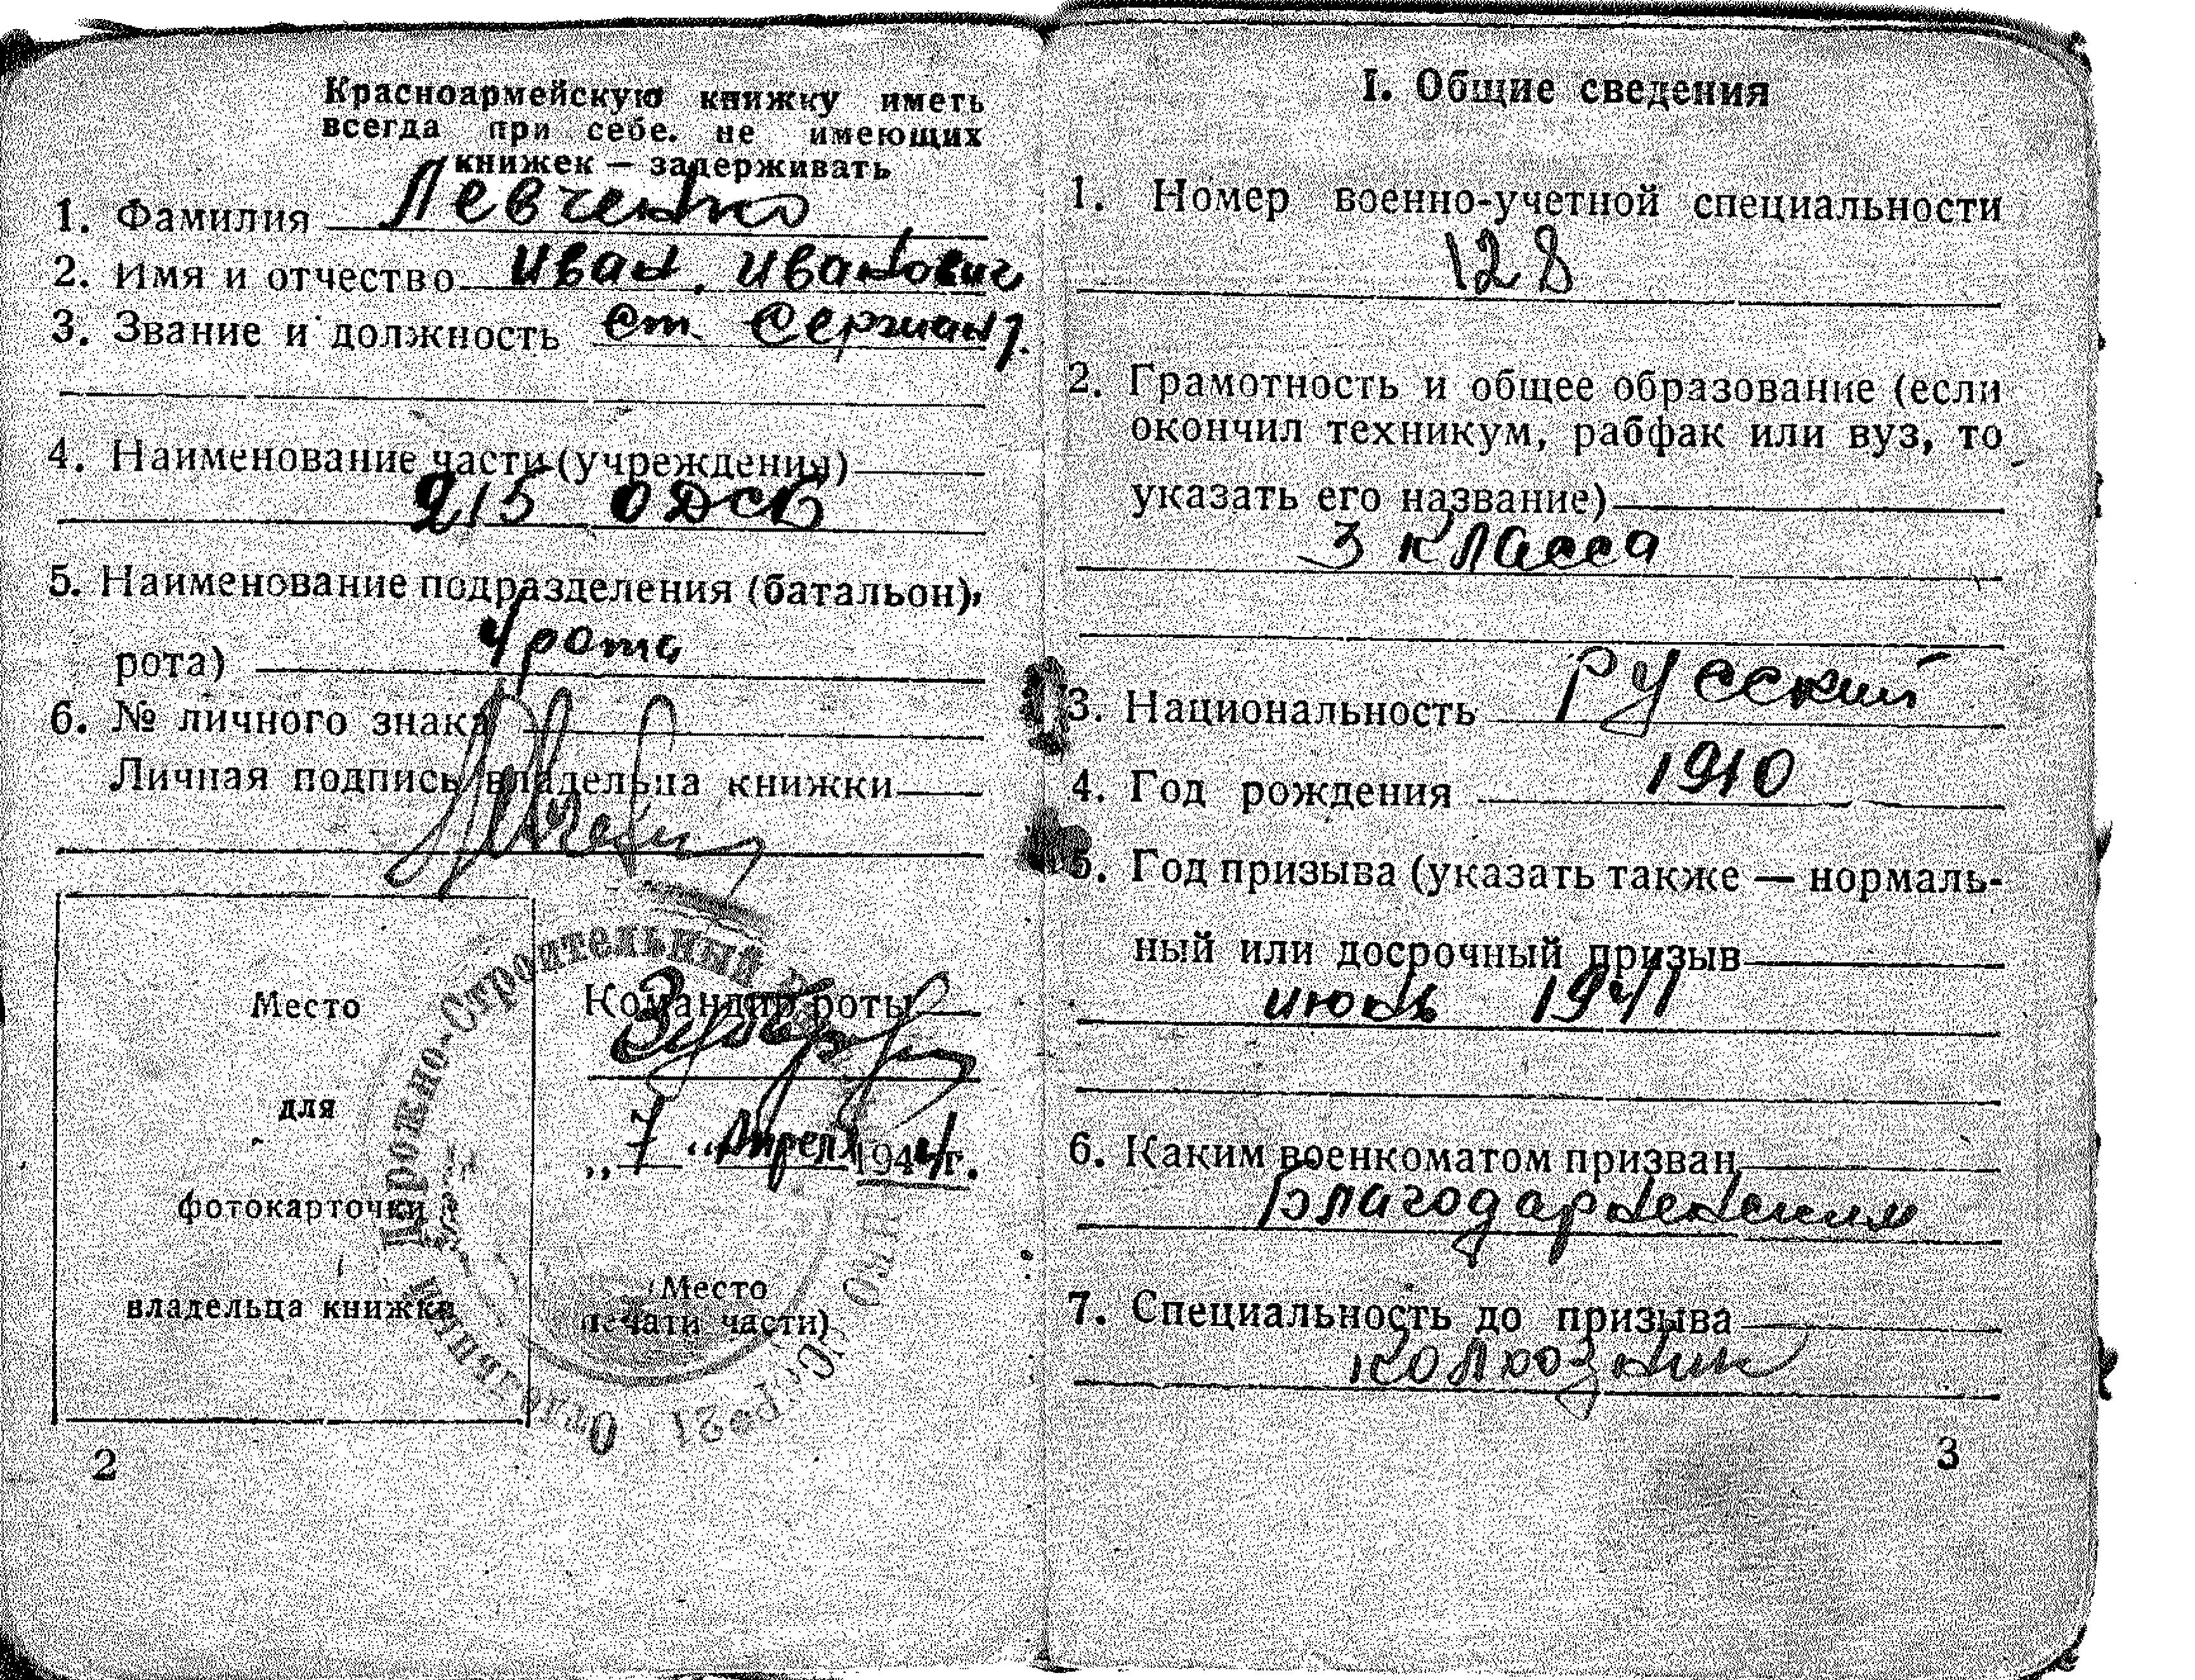 Красноармейскую книжку иметь
всегда при себе. не имеющих
книжек — задерживать
1. Фамилия Левченко
2. Имя и отчество Иван. Иванович
3. Звание и должность ст. Сержант.
4. Наименование части (учреждения)
215 ОДСБ
5. Наименование подразделения (батальон),
рота) 4 рота
6. № личного знака
Личная подпись владельца книжки
Место
для
фотокарточки
владельца книжки
Командир роты
„ 7 " Апреля 1944 г.
(Место
печати части)
Отдельный Дорожно-Строительный
2
I. Общие сведения
1. Номер военно-учетной специальности
128
2. Грамотность и общее образование (если
окончил техникум, рабфак или вуз, то
указать его название)
3 класса
3. Национальность Русский
4. Год рождения 1910
5. Год призыва (указать также — нормаль-
ный или досрочный призыв
1941
6. Каким военкоматом призван
Благодарненским
7. Специальность до призыва
колхозник
3